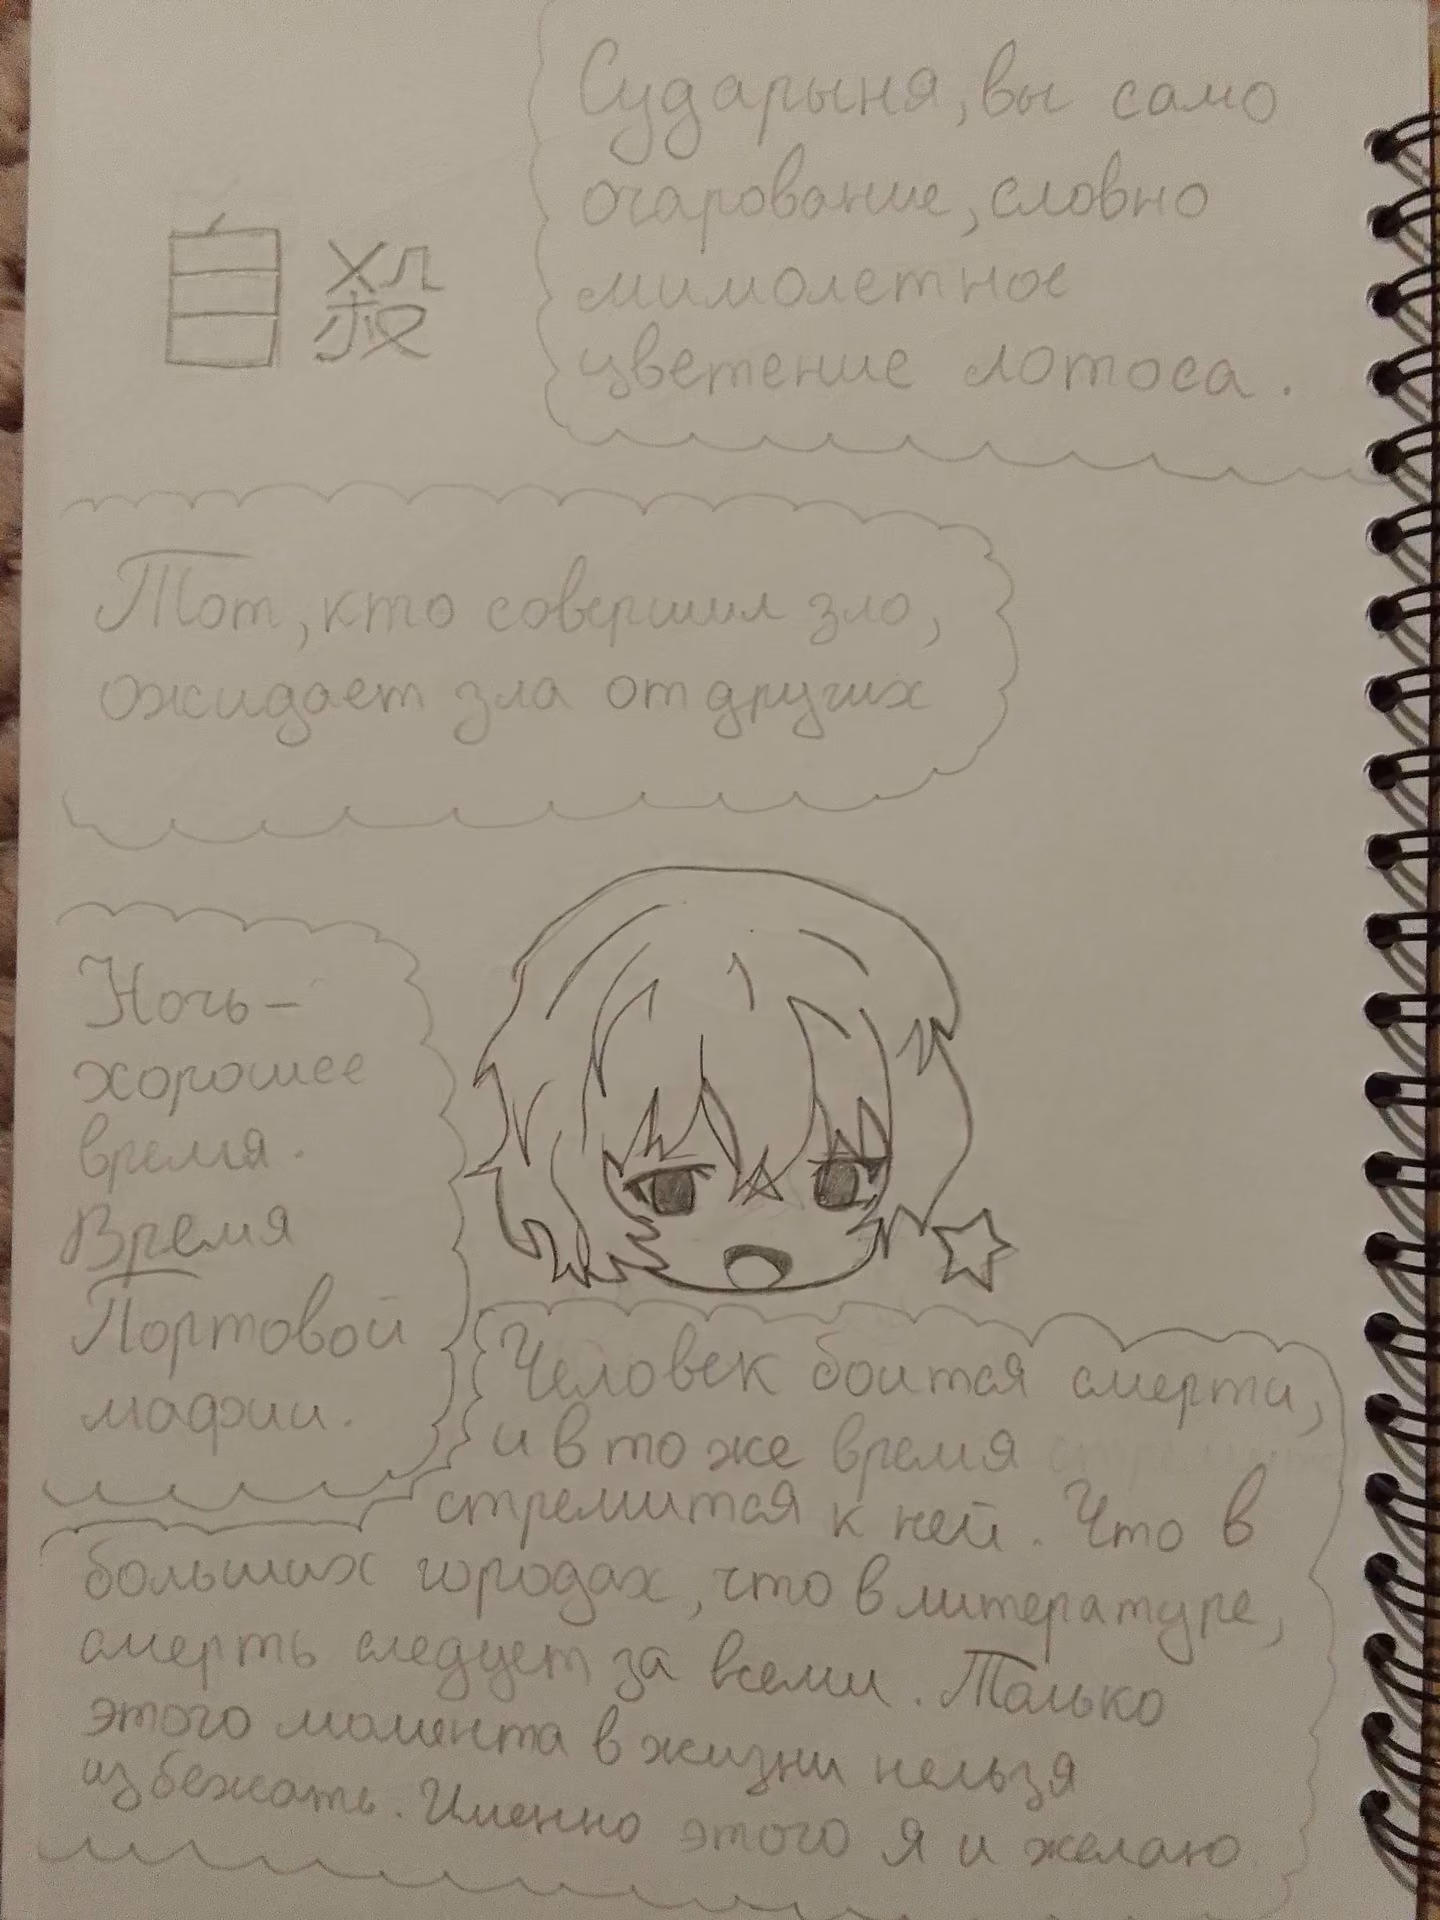 自殺
Сударыня, вы само
очарование, словно
мимолетное
цветение лотоса.
Тот, кто совершил зло,
ожидает зла от других
Ночь-
хорошее
время.
Время
Портовой
мафии.
Человек боится смерти,
и в то же время
стремится к ней. Что в
больших городах, что в литературе,
смерть следует за всеми. Только
этого момента в жизни нельзя
избежать. Именно этого я и желаю